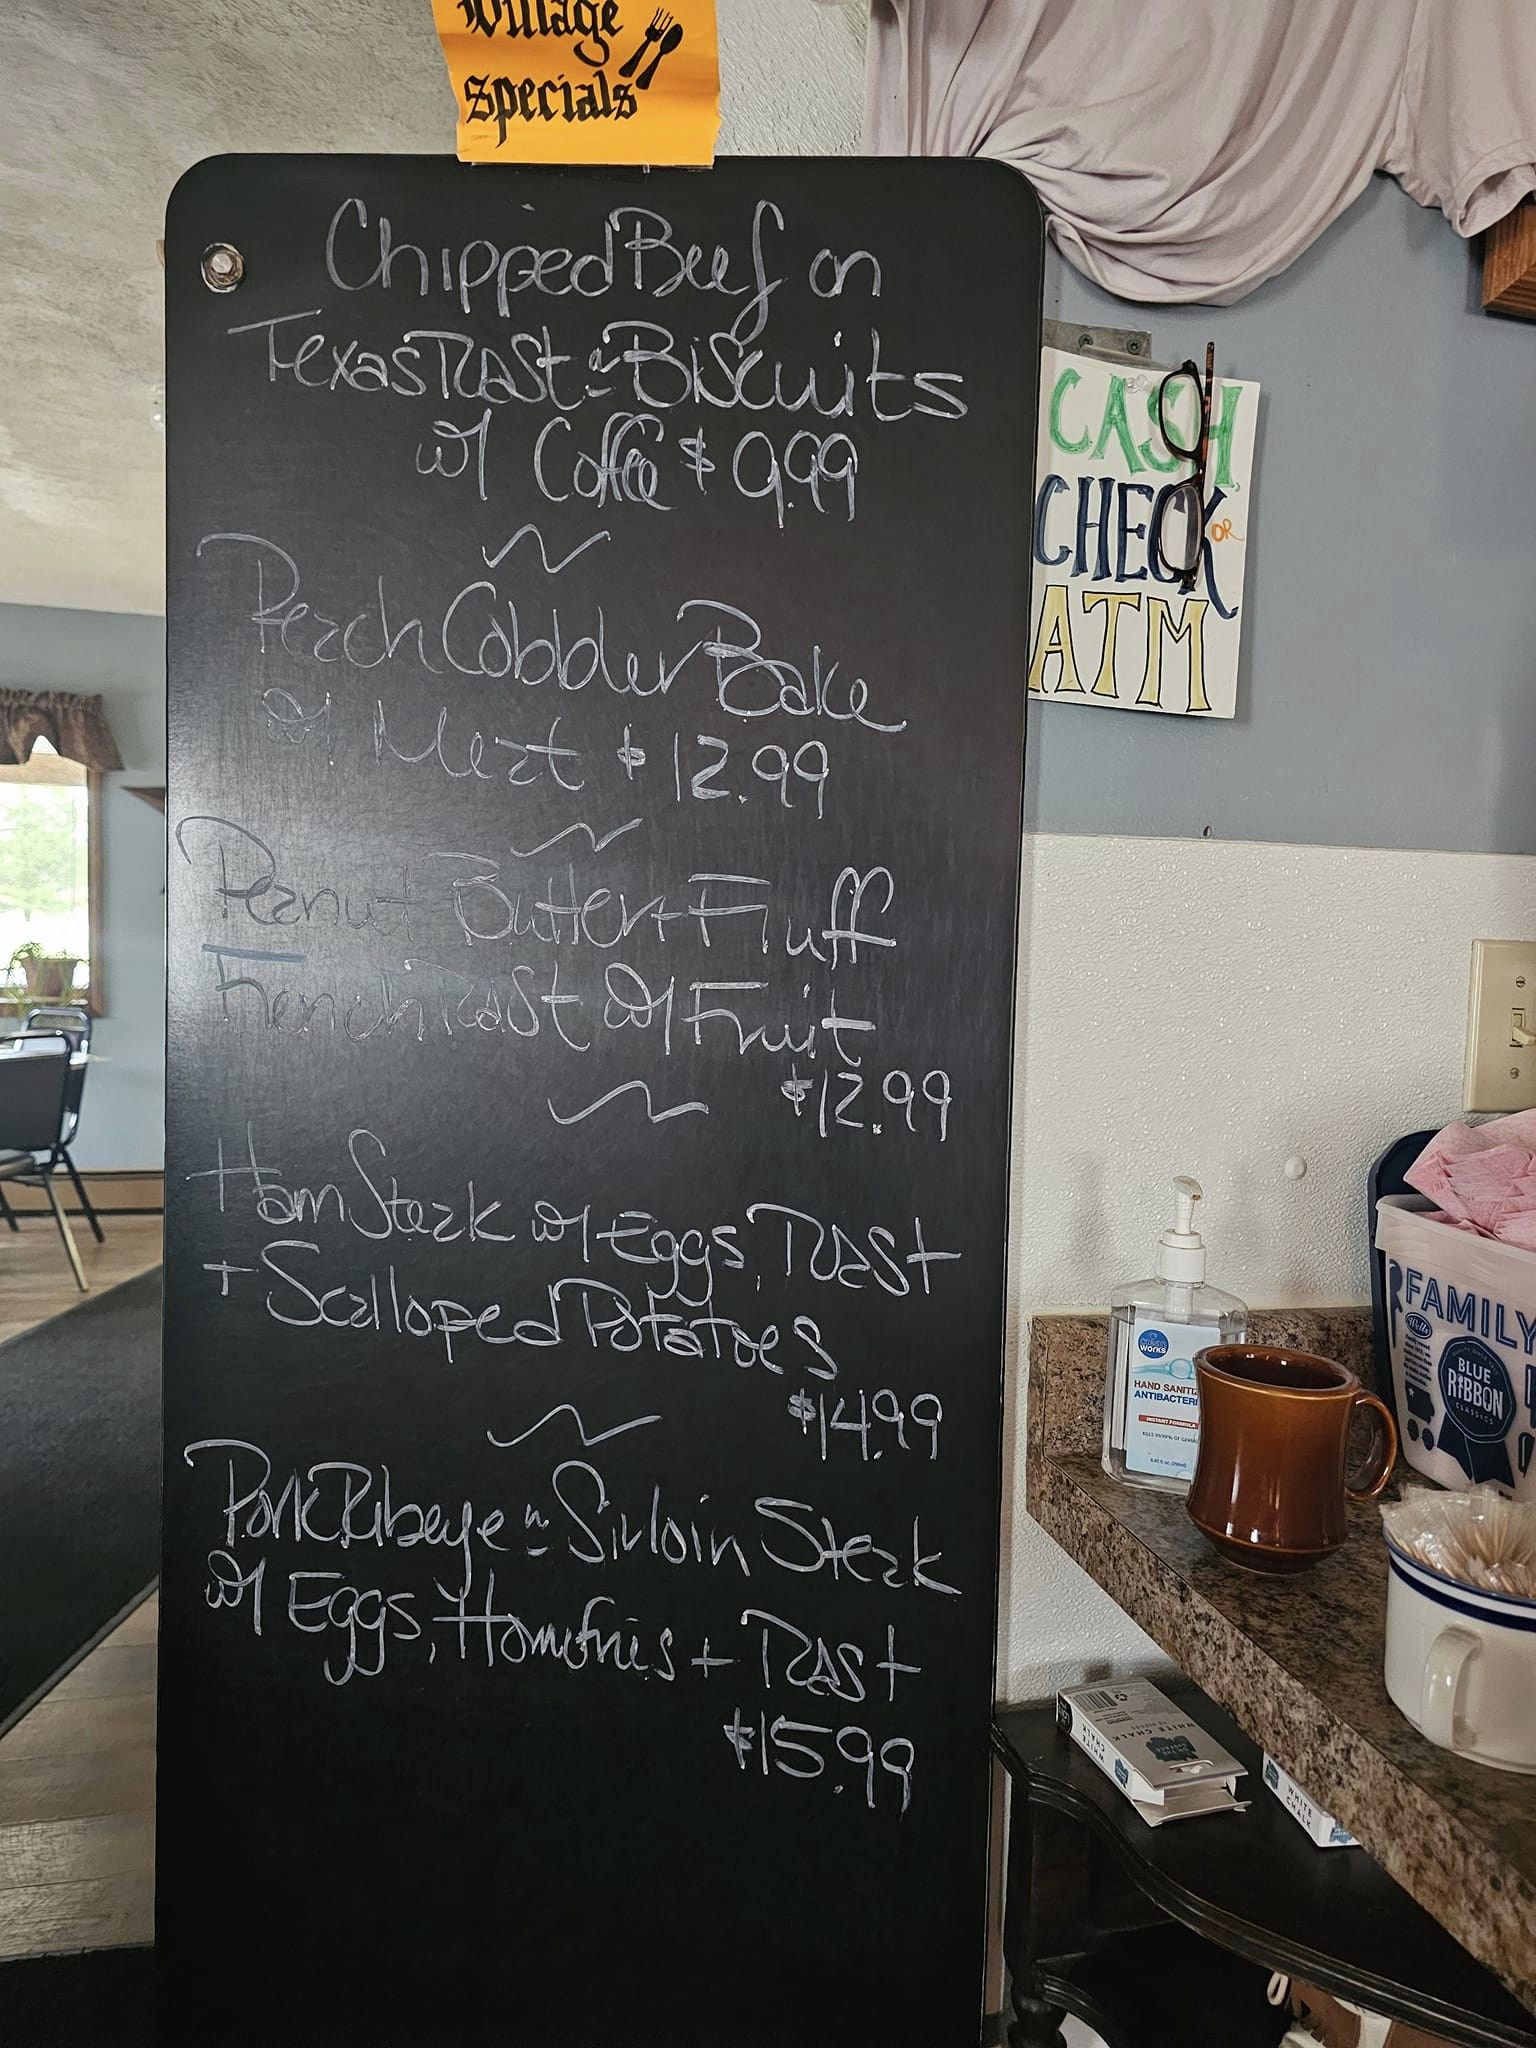 Village
specials
Chipped Beef on
Texas Toast or Biscuits
w/ Coffee $9.99
~
Peach Cobbler Bake
w/ Meat $12.99
~
Peanut Butter + Fluff
French Toast w/ Fruit
$12.99
~
Ham Steak w/ Eggs, Toast
+ Scalloped Potatoes
$14.99
~
Pork Ribeye or Sirloin Steak
w/ Eggs, Homefries + Toast
$15.99
CASH
CHECK OR
ATM
WORKS
HAND SANITI
ANTIBACTERI
INSTANT FORMULA
KILLS 99.99% OF GERMS
8.45 fl. oz. (250ml)
FAMILY
Wells
BLUE
RIBBON
CLASSICS
WHITE CHALK
WHITE
CHALK
WHITE
CHALK